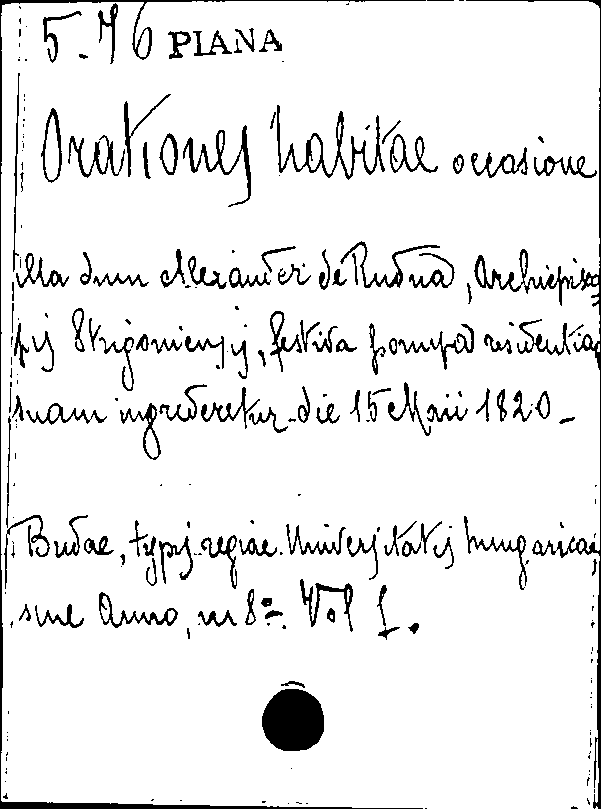 5.76 PIANA
Orationes habitae occasione
illa dum Alexander de Rudna, Archiepisco
pus Strigoniensis, festiva pompa residentiam
suam ingrederetur die 15 Maii 1820-
Budae, typis regiae Universitatis hungaricae,
sine Anno, in 8º. Vol 1.